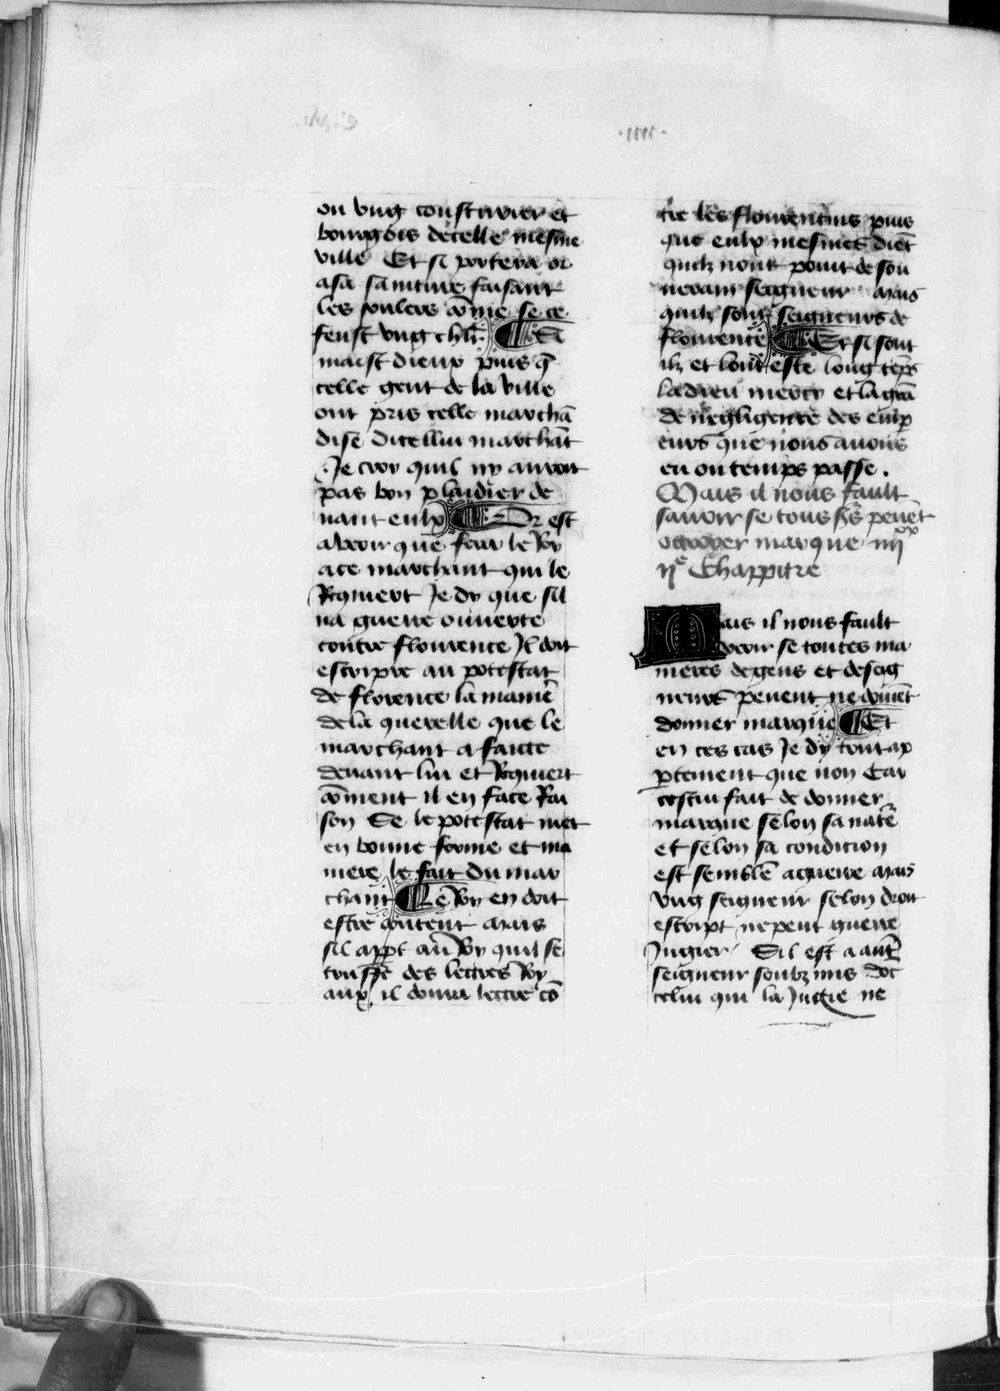 .IIII.
ou ung cousturier et
bourgois de celle mesme
ville Et si portera or
a sa sainture faisant
les soulers cōme se ce
feust ung chlr̄ ¶ Et
maist dieux puis q̄
celle gent de la ville
ont pris celle marchā
dise dicellui marchāt
Je croy quil ny auroit
pas bon plaidier de
uant eulx ¶ Or est
a veoir que fera le Roy
a ce marchant qui le
Requiert Je dy que sil
na guerre ouuerte
contre flourence Il doit
escripre au potestat
de florence la maniē
de la querelle que le
marchant a faicte
deuant lui et Requiert
cōment il en face Rai
son Se le potestat met
en bonne forme et ma
niere le fait du mar
chant ¶ Le Roy en doit
estre content mais
sil appt̄ au Roy quil se
trusse des lectres Roy
aux il donra lectre cō
tre les flourentins puis
que eulx mesmes diēt
quilz nont point de sou
uerain seigneur mais
quilz sont seigneurs de
flourence ¶ Et si sont
ilz et lont este long tēps
la dieu mercy et la grā
de negligence des emp̄
eurs que nous auons
eu ou temps passe .
Mais il nous fault
sauoir se tous s̄rs peuēt
octroyer marque iiijxx
ije Chappitre
Mais il nous fault
veoir se toutes ma
nieres de gens et de seig
neurs peuent ne doiuēt
donner marque ¶ Et
en ces cas Je dy tout ap
p̄tement que non Car
cestui fait de donner
marque selon sa natē
et selon sa condicion
est semblē a guerre mais
ung seigneur selon droit
escript ne peut guerre
Jugier Sil est a autr̄
seigneur soubz mis dōc
celui qui la Juge ne